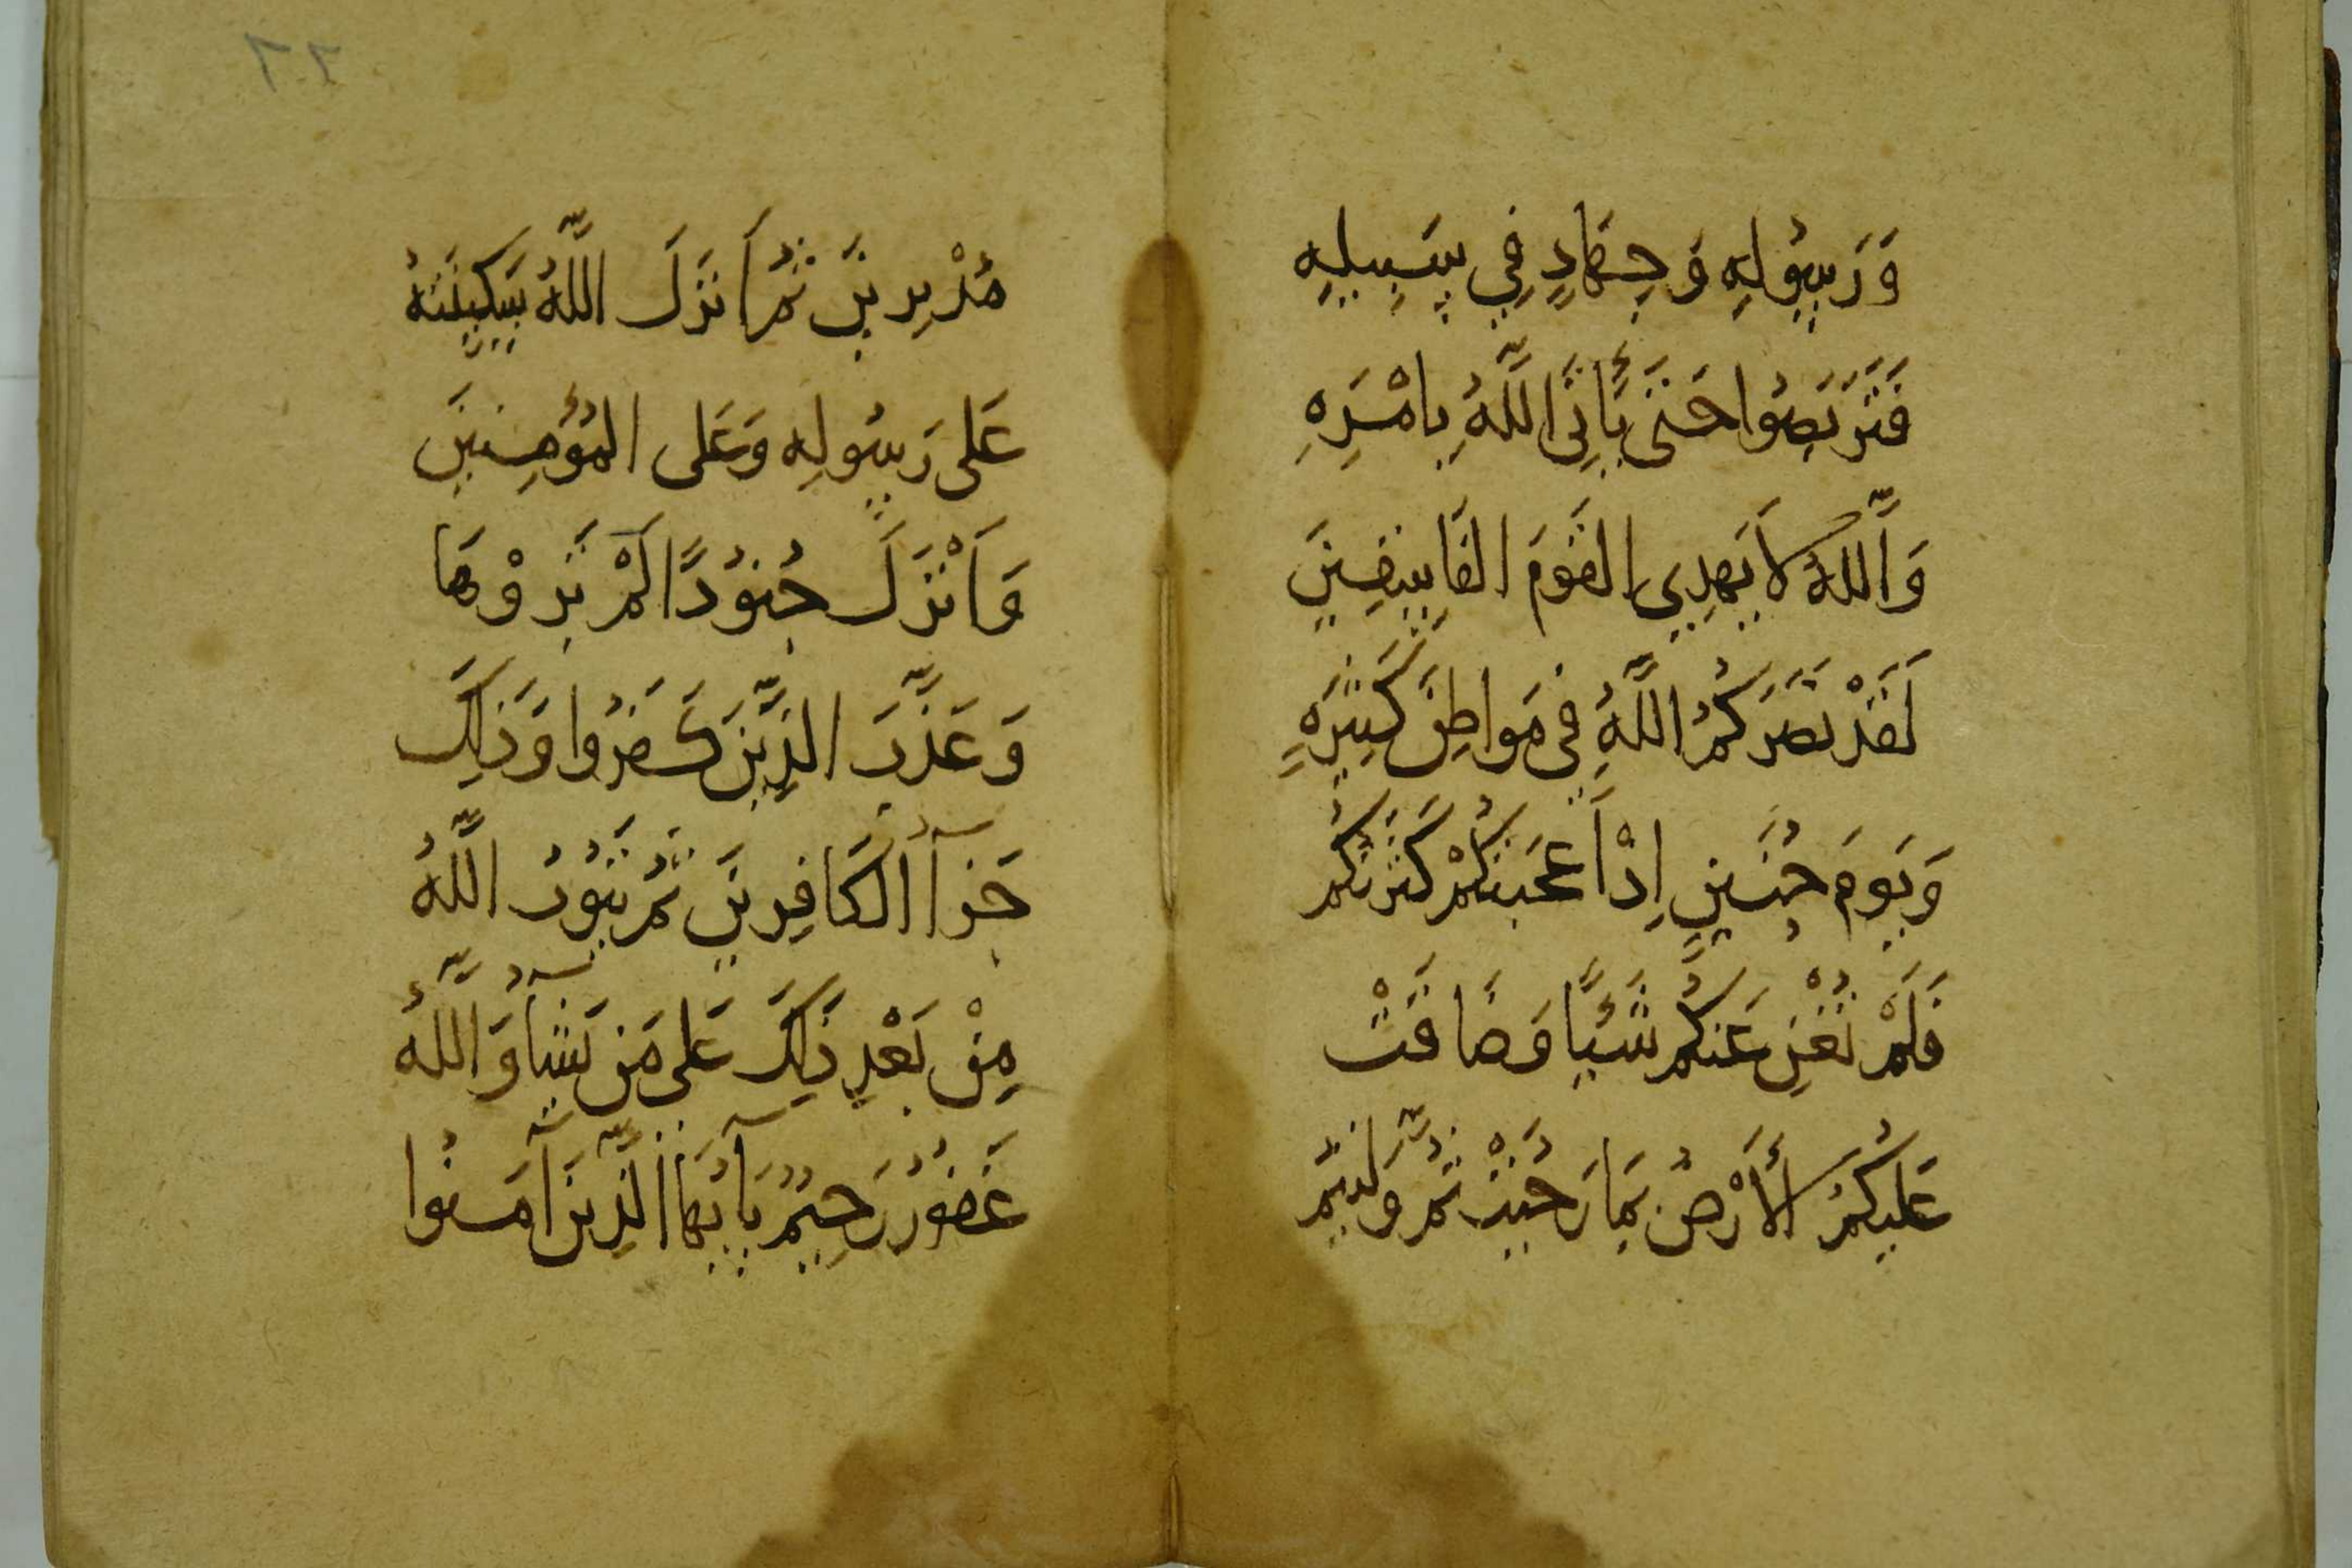 وَرَسُولِهِ وَجِهَادٍ فِي سَبِيلِهِ
فَتَرَبَصُوا حَتَى يَأتِىَ اللَّهُ بِامْرِهِ
وَاللَّهُ لَا يَهدِي القَومَ الفَاسِقِينَ
لَقَدْ نَصَرَكُمُ اللَّهُ فِى مَوَاطِنَ كَثِيرَةٍ
وَيَومَ حُنَينٍ اِذْاَعجَبَتكُمْ كَثرَتُكُم
فَلَمْ تُغْنِ عَنكُم شَئيًا وَضَاقَتْ
عَلَيكُمُ الأَرْضُ بِمَا رَحُبَتْ ثُمَّ وَلَيتُم
مُدْبِرِينَ ثُمَ اَنزَلَ اللَّهُ سَكِينَتَهُ
عَلى رَسُولِهِ وَعَلى المُؤمِنِينَ
وَاَنْزَلَ جُنُودًا لَمْ تَروْهَا
وَعَذَّبَ الَّذِينَ كَفَرُوا وَذَلِكَ
جَزآُ الكَافِرِينَ ثُمَ يَتُوبُ اللَّهُ
مِنْ بَعْدِ ذَلِكَ عَلَى مَن يَشَآُ وَاللَّهُ
غَفُورٌ رَحِيمٌ يَآ اَيُهَا الَّذِينَ آمَنُوا